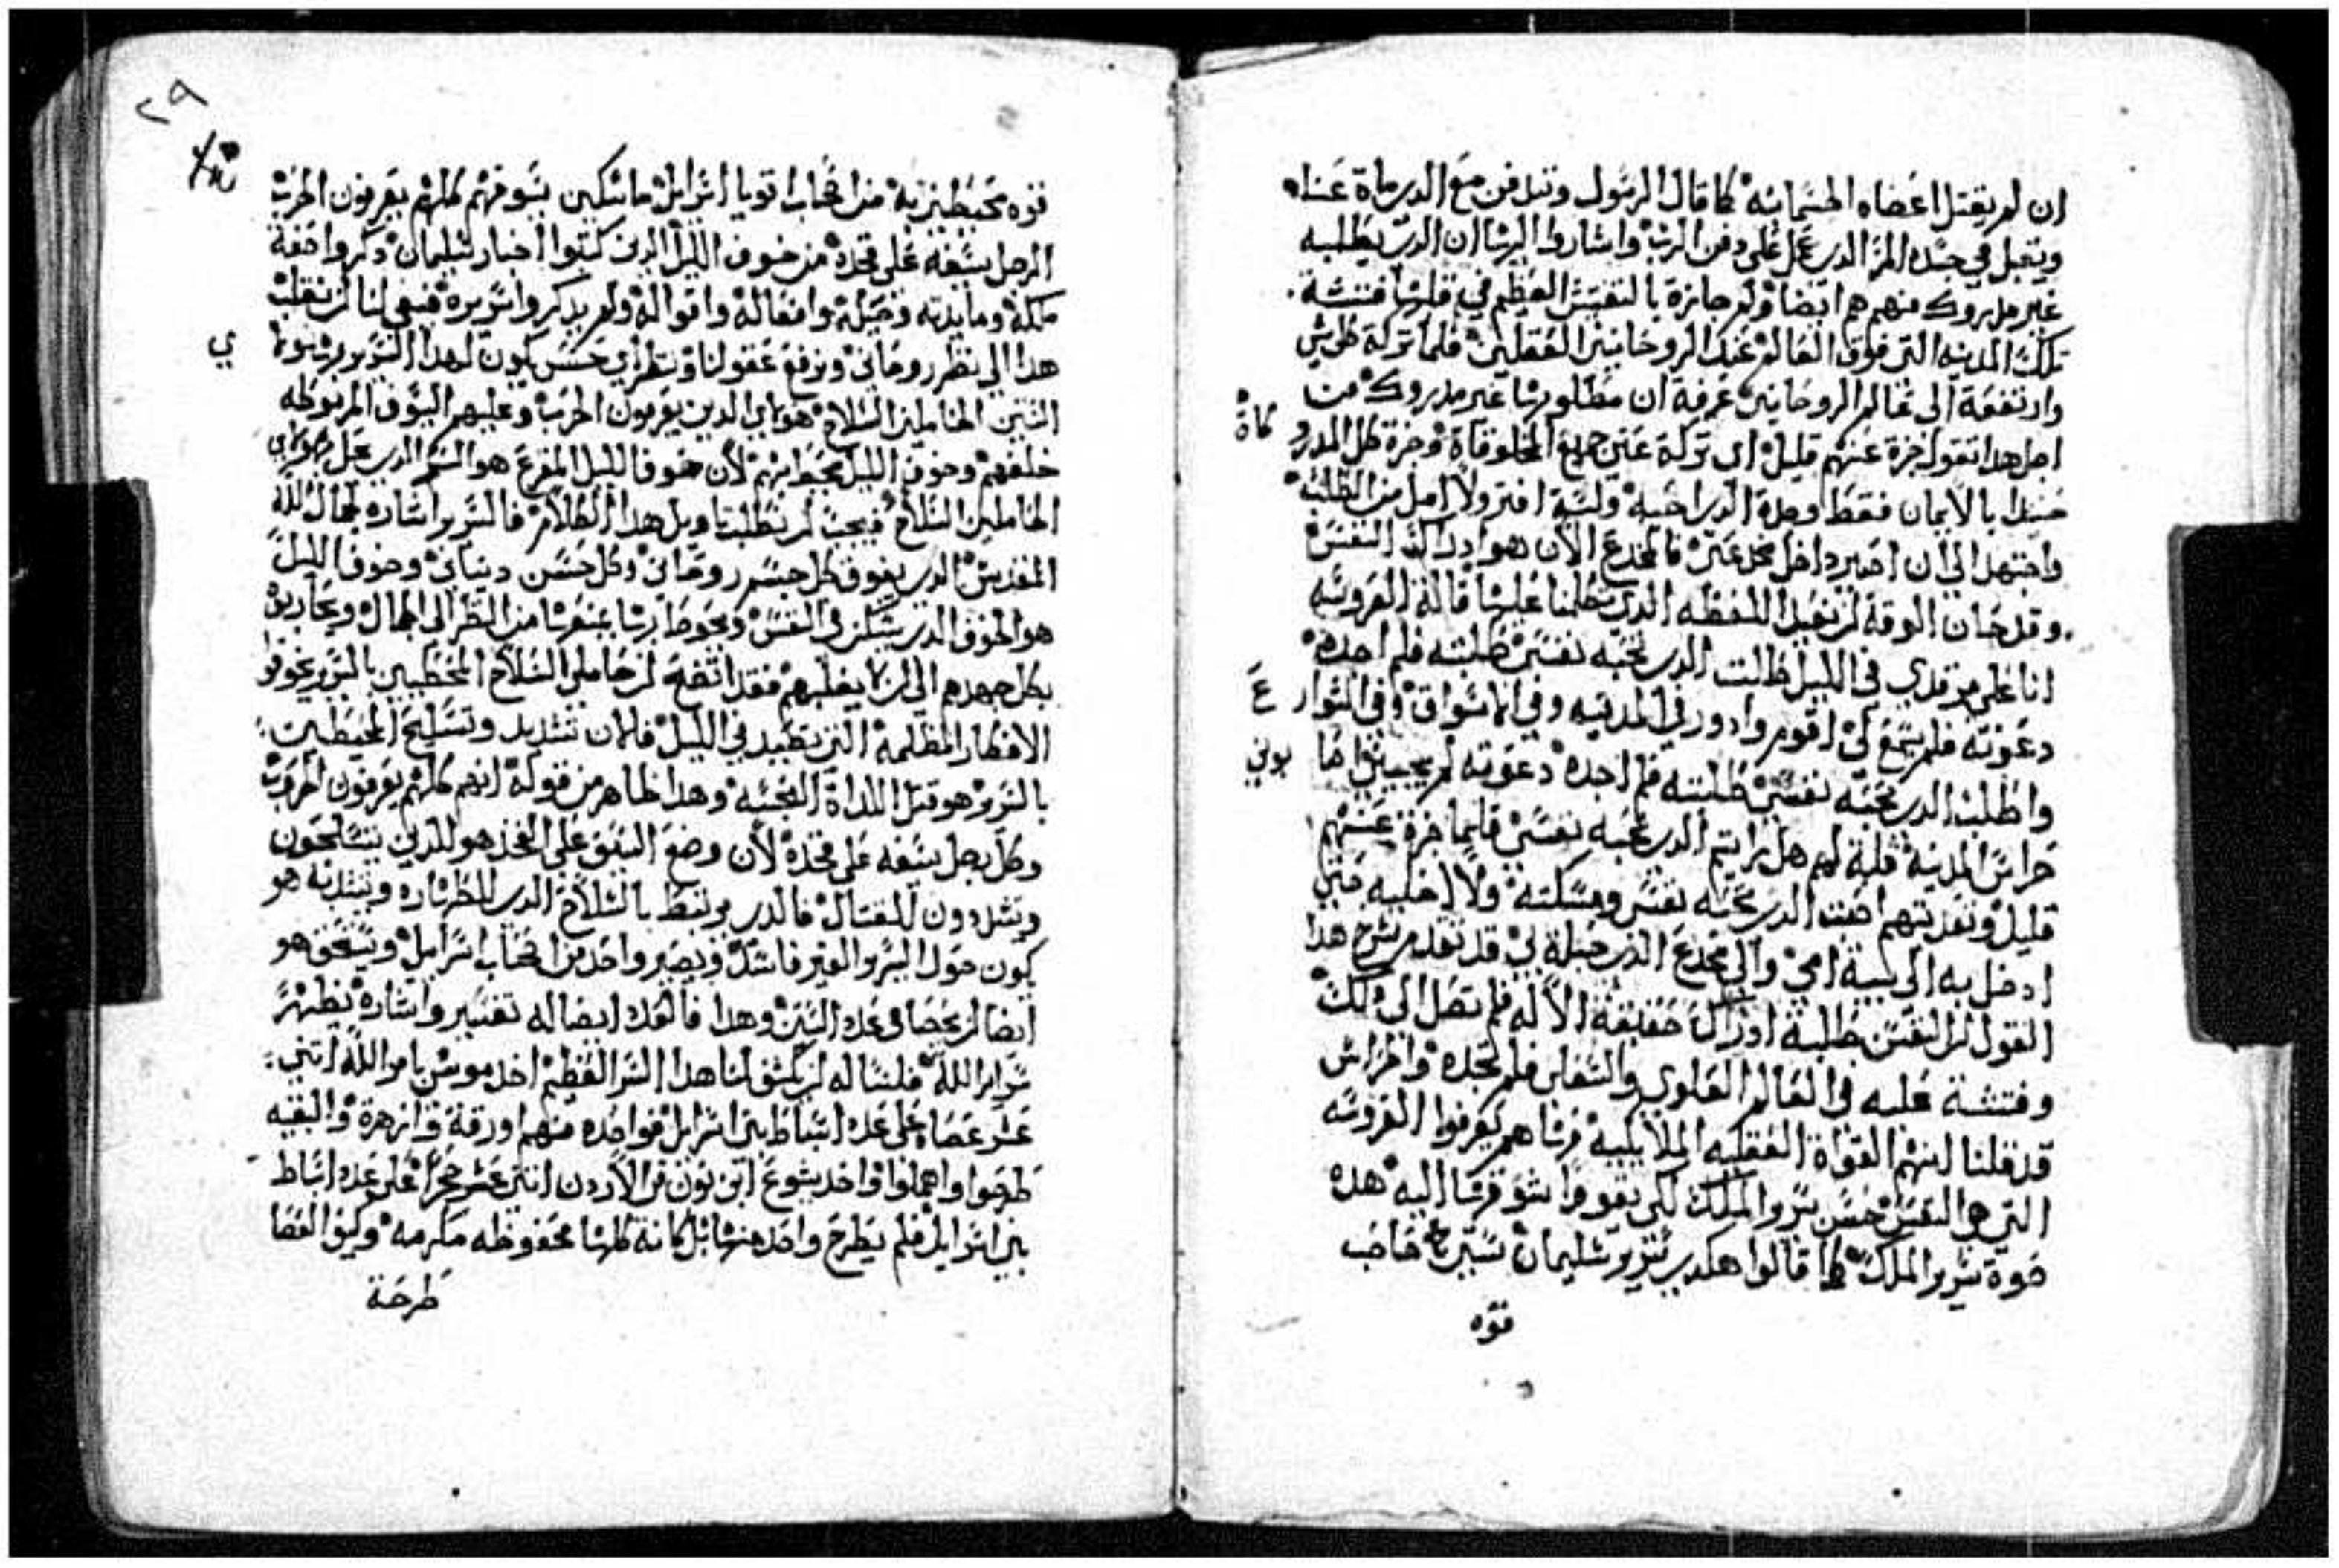 ان لم يقتل اعضاه الجسمانيه كما قال الرسول وتندفن مع الدى ماة عناه
ويقبل في جسده المر الدى عمل على دفن الرب واشارط اليها ان الدى يطلبه
غير مدروك منهم هم ايضا ولم جازة بالنفس العظم في قلبها فتشة
تلك المدينه التى فوق العالم عند الروحانيين العقليين فلما تركة كلى شى
وارتفعة الى عالم الروحانيين عرفة ان مطلوبها غير مدروك من
اجل هدا تقول جزة عنهم قليل اى تركة عنى جميع المخلوقاة وجزة كل المدرو كاة
حينيدا بالايمان فقط وجدة الدى احبه ولسة افتر ولا امل من الطلبه
واجتهد الى ان اصير داخل مخدعى فالمخدع الان هو ادراك النفس
وقد حان الوقة لن نقبل اللفظه الدى تكلمنا عليها قالة العروسه
انا على مرقدي في الليل طلبت الدى تحبه نفسى طلبته فلم اجده
دعوته فلم يسمع لى اقوم وادور في المدينه وفي الاسواق وفي الشوار ع
واطلب الدى تحبه نفسى طلبته فلم اجده دعوته لم يجيبنى اصا بونى
حراس المدينه قلة لهم هل رايتم الدى تحبه نفسى فلما جزة عنهم
قليل وتعديتهم اصبت الدى تحبه نفسى ومسكته ولا اخليه حتى
ادخل به الى بيت امى والى مخدع الدى حبلة بى قد تقدم شرح هدا
القول لن النفس طلبة ادراك حقيقة الاله فلم تصل الى دلك
وفتشة عليه في العالم العلوى والسفلى فلم تجده والحراس
قد قلنا انهم القواة العقليه الملايكيه فرساهم يعرفوا العروسه
التى هى النفس حسن سرير الملك لكى يقووا شوقها اليه هده
صوة سرير الملك كما قالوا هكدى سرير سليمان ستين صاحب
قوه
٢٩
قوه محيطين به من اصحاب اقويا اسرايل ماسكين سيوفهم كلهم يعرفون الحرب
الرجل سيفه على فخده من خوف الليل الدين كتبوا اخبار سليمان دكروا صفة
ملكه ومايدته وخيله وافعاله واقواله ولم يدكروا سريره فينبغى لنا لن نقلب
هدا الى نظر روحانى ونرفع عقولنا وننظر اي حسن يكون لهدا السرير
الستين الحاملين السلاح الدين يعرفون الحرب وعليهم السيوف المربوطه
خلفهم وخوف الليل لان خوف الليل المفزع هو الشر الدى عمل
الحاملين السلاح فيجب لن نطلب تاويل هدا الكلام فالسرير اشاره لجمال الله
المقدس الدى يفوق كل جسم روحانى وكل حسن دنيانى وخوف الليل
هو الخوف الدى يسكن فى النفس ويحوط بها يمنعها من النظر الى الجمال ويحاربوه
بكل جهدهم الى لن يغلبهم فقد اتضح لن حاملى السلاح المحيطين بالسرير يخوفوا
الافكار المظلمه التى تصيد فى الليل فلان تشديد وتسليح المحيطين
بالسرير هو قتل اللداة النجسه وهدا ظاهر من قوله انهم كلهم يعرفون الحروب
وكل رجل سيفه على فخده لان وضع السيف على الفخد هو للدين يتسلحون
ويتشددون للقتال فالدى يرتبط بالسلاح الدى للطهاره ويتبدته هو
يكون حول السرير الغير فاسد ويصير واحد من اصحاب اسرايل ويستحق هو
ايضا لن يحصا فى عدد الستين وهدا فالعدد ايضا له تفسير واشاره يظهر
سراير الله فلنساله لن يكشف لنا هدا السر العظيم اخد موسى بامر الله اتنى
عشر عصاه على عدد اسباط بنى اسرايل فواحده منهم اورقة وازهرة والبقيه
طرحوا واهملوا واخد يشوع ابن نون من الاردن اتنى عشر حجرا على عدد اسباط
بنى اسرايل فلم يطرح واحد منها بل كانة كلها محفوظه مكرمه وكيف العصا
طرحة